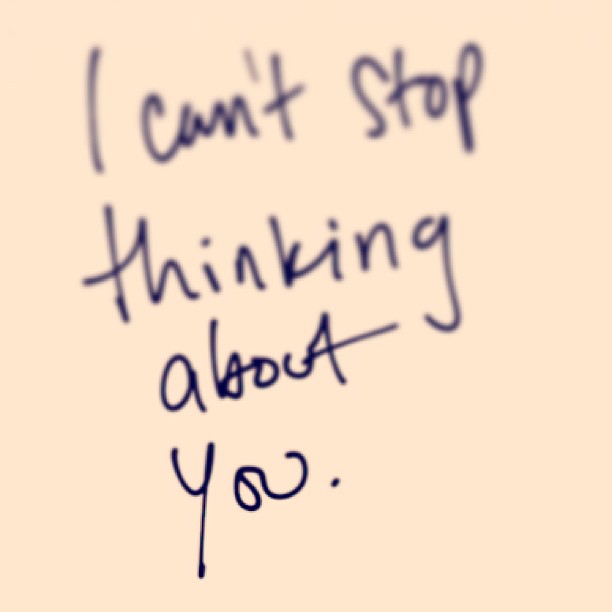 I can't stop
thinking
about
you.